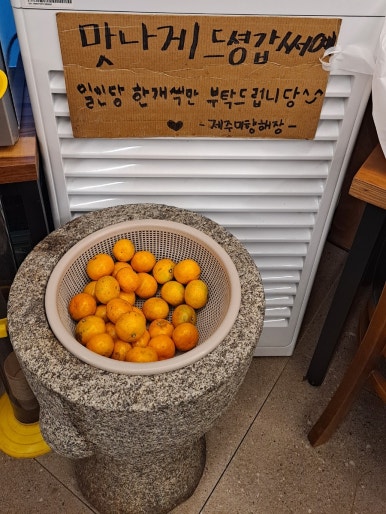 맛나게 드셩갑써예
일인당 한개씩만 부탁드립니당^^
♥ -제주미향해장-